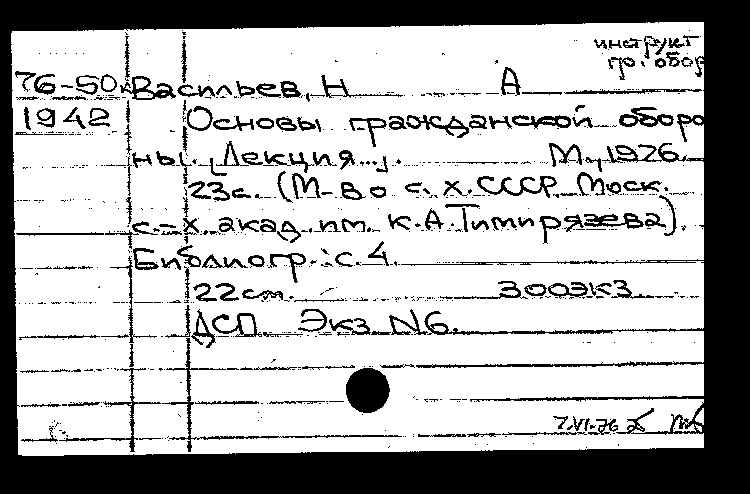 инструкт
гр. обор
76-50 Васильев, Н А
1942 Основы гражданской оборо
ны. [Лекция...]. М., 1976.
23с. (М-во с. х. СССР. Моск.
с.-х. акад. им. К.А.Тимирязева).
Библиогр.: с. 4.
22см. 300экз.
ДСП. Экз. N6.
7.VI-76